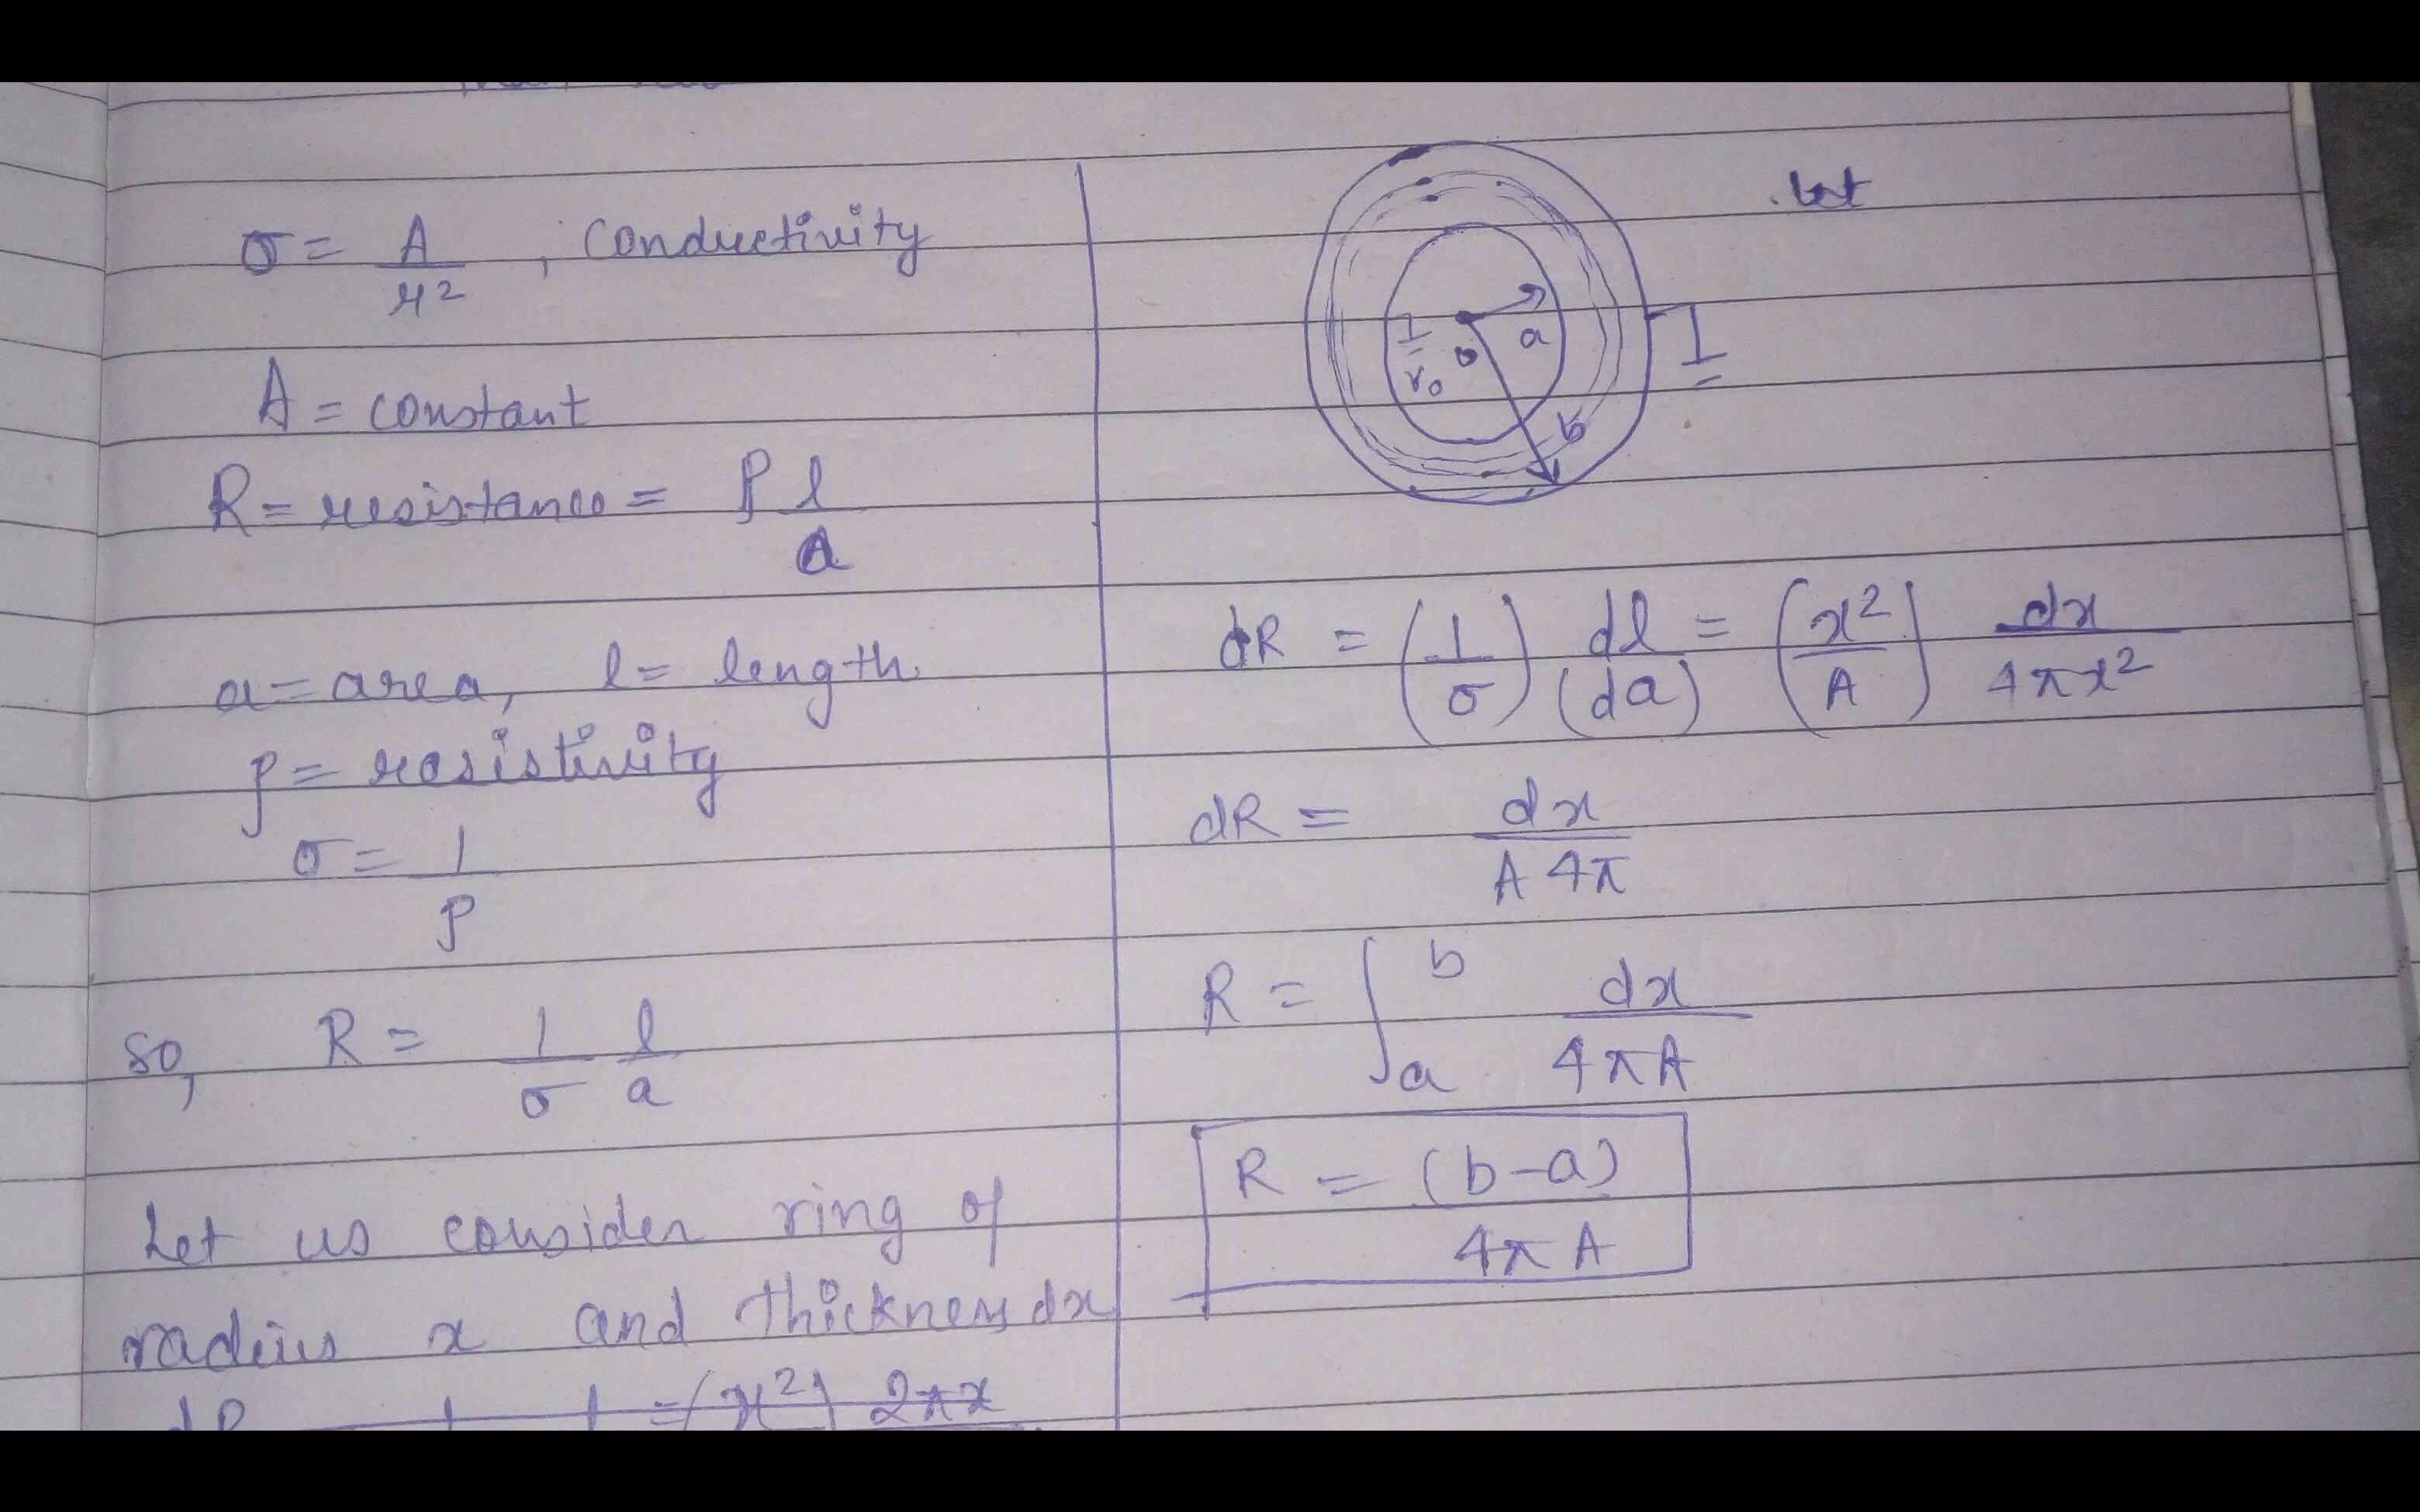 σ = A/r² , conductivity
A = constant
R = resistance = ρ l/a
a = area, l = length
ρ = resistivity
σ = 1/ρ
so, R = 1/σ l/a
Let us consider ring of
radius x and thickness dx
= (x²) 2πx
let
I a
r₀ o
b
I
dR = (1/σ) dl/(da) = (x²/A) dx/4πx²
dR = dx/A4π
R = ∫ₐᵇ dx/4πA
R = (b-a)/4πA